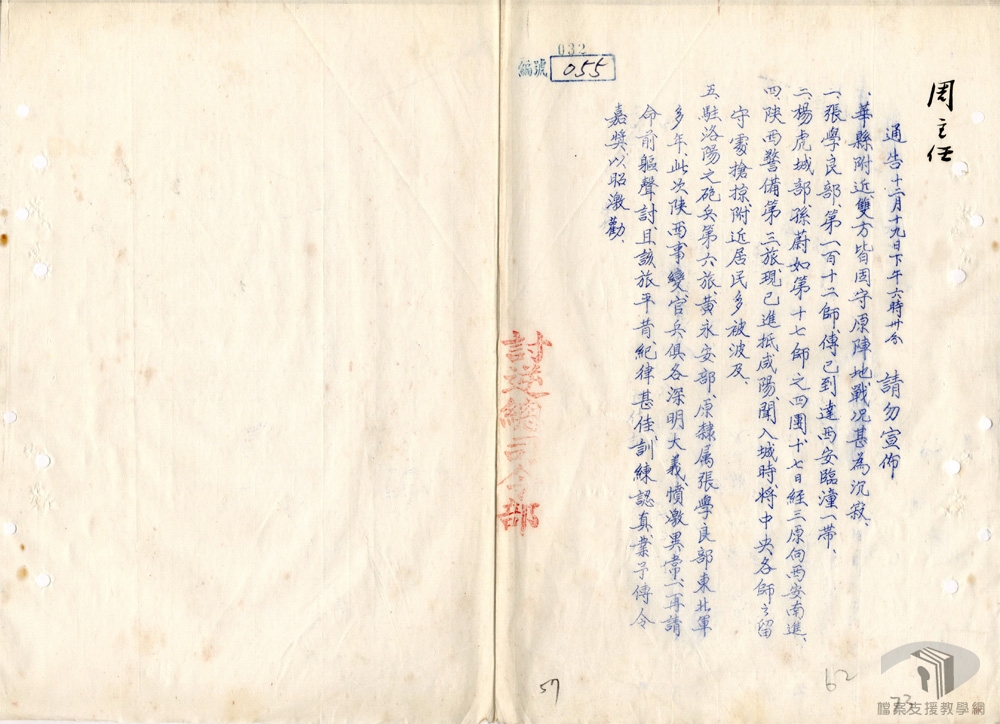 周主任
通告十二月十九日下午六時卅分 請勿宣佈
一、華縣附近雙方皆固守原陣地、戰況甚為沉寂、
二、張學良部、第一百十二師、傳已到達西安臨潼一帶、
三、楊虎城部孫蔚如第十七師之四團十七日經三原向西安南進、
四、陝西警備第三旅、現已進抵咸陽、聞入城時、將中央各師之留
守處搶掠、附近居民多被波及、
五、駐洛陽之砲兵第六旅、黃永安部、原隸屬張學良部東北軍
多年、此次陝西事變、官兵俱各深明大義、憤激異常、一再請
命前驅聲討、且該旅平昔紀律甚佳、訓練認真、業予傳令
嘉獎、以昭激勸、
032
編號 055
討逆總司令部
57
62
73
檔案支援教學網